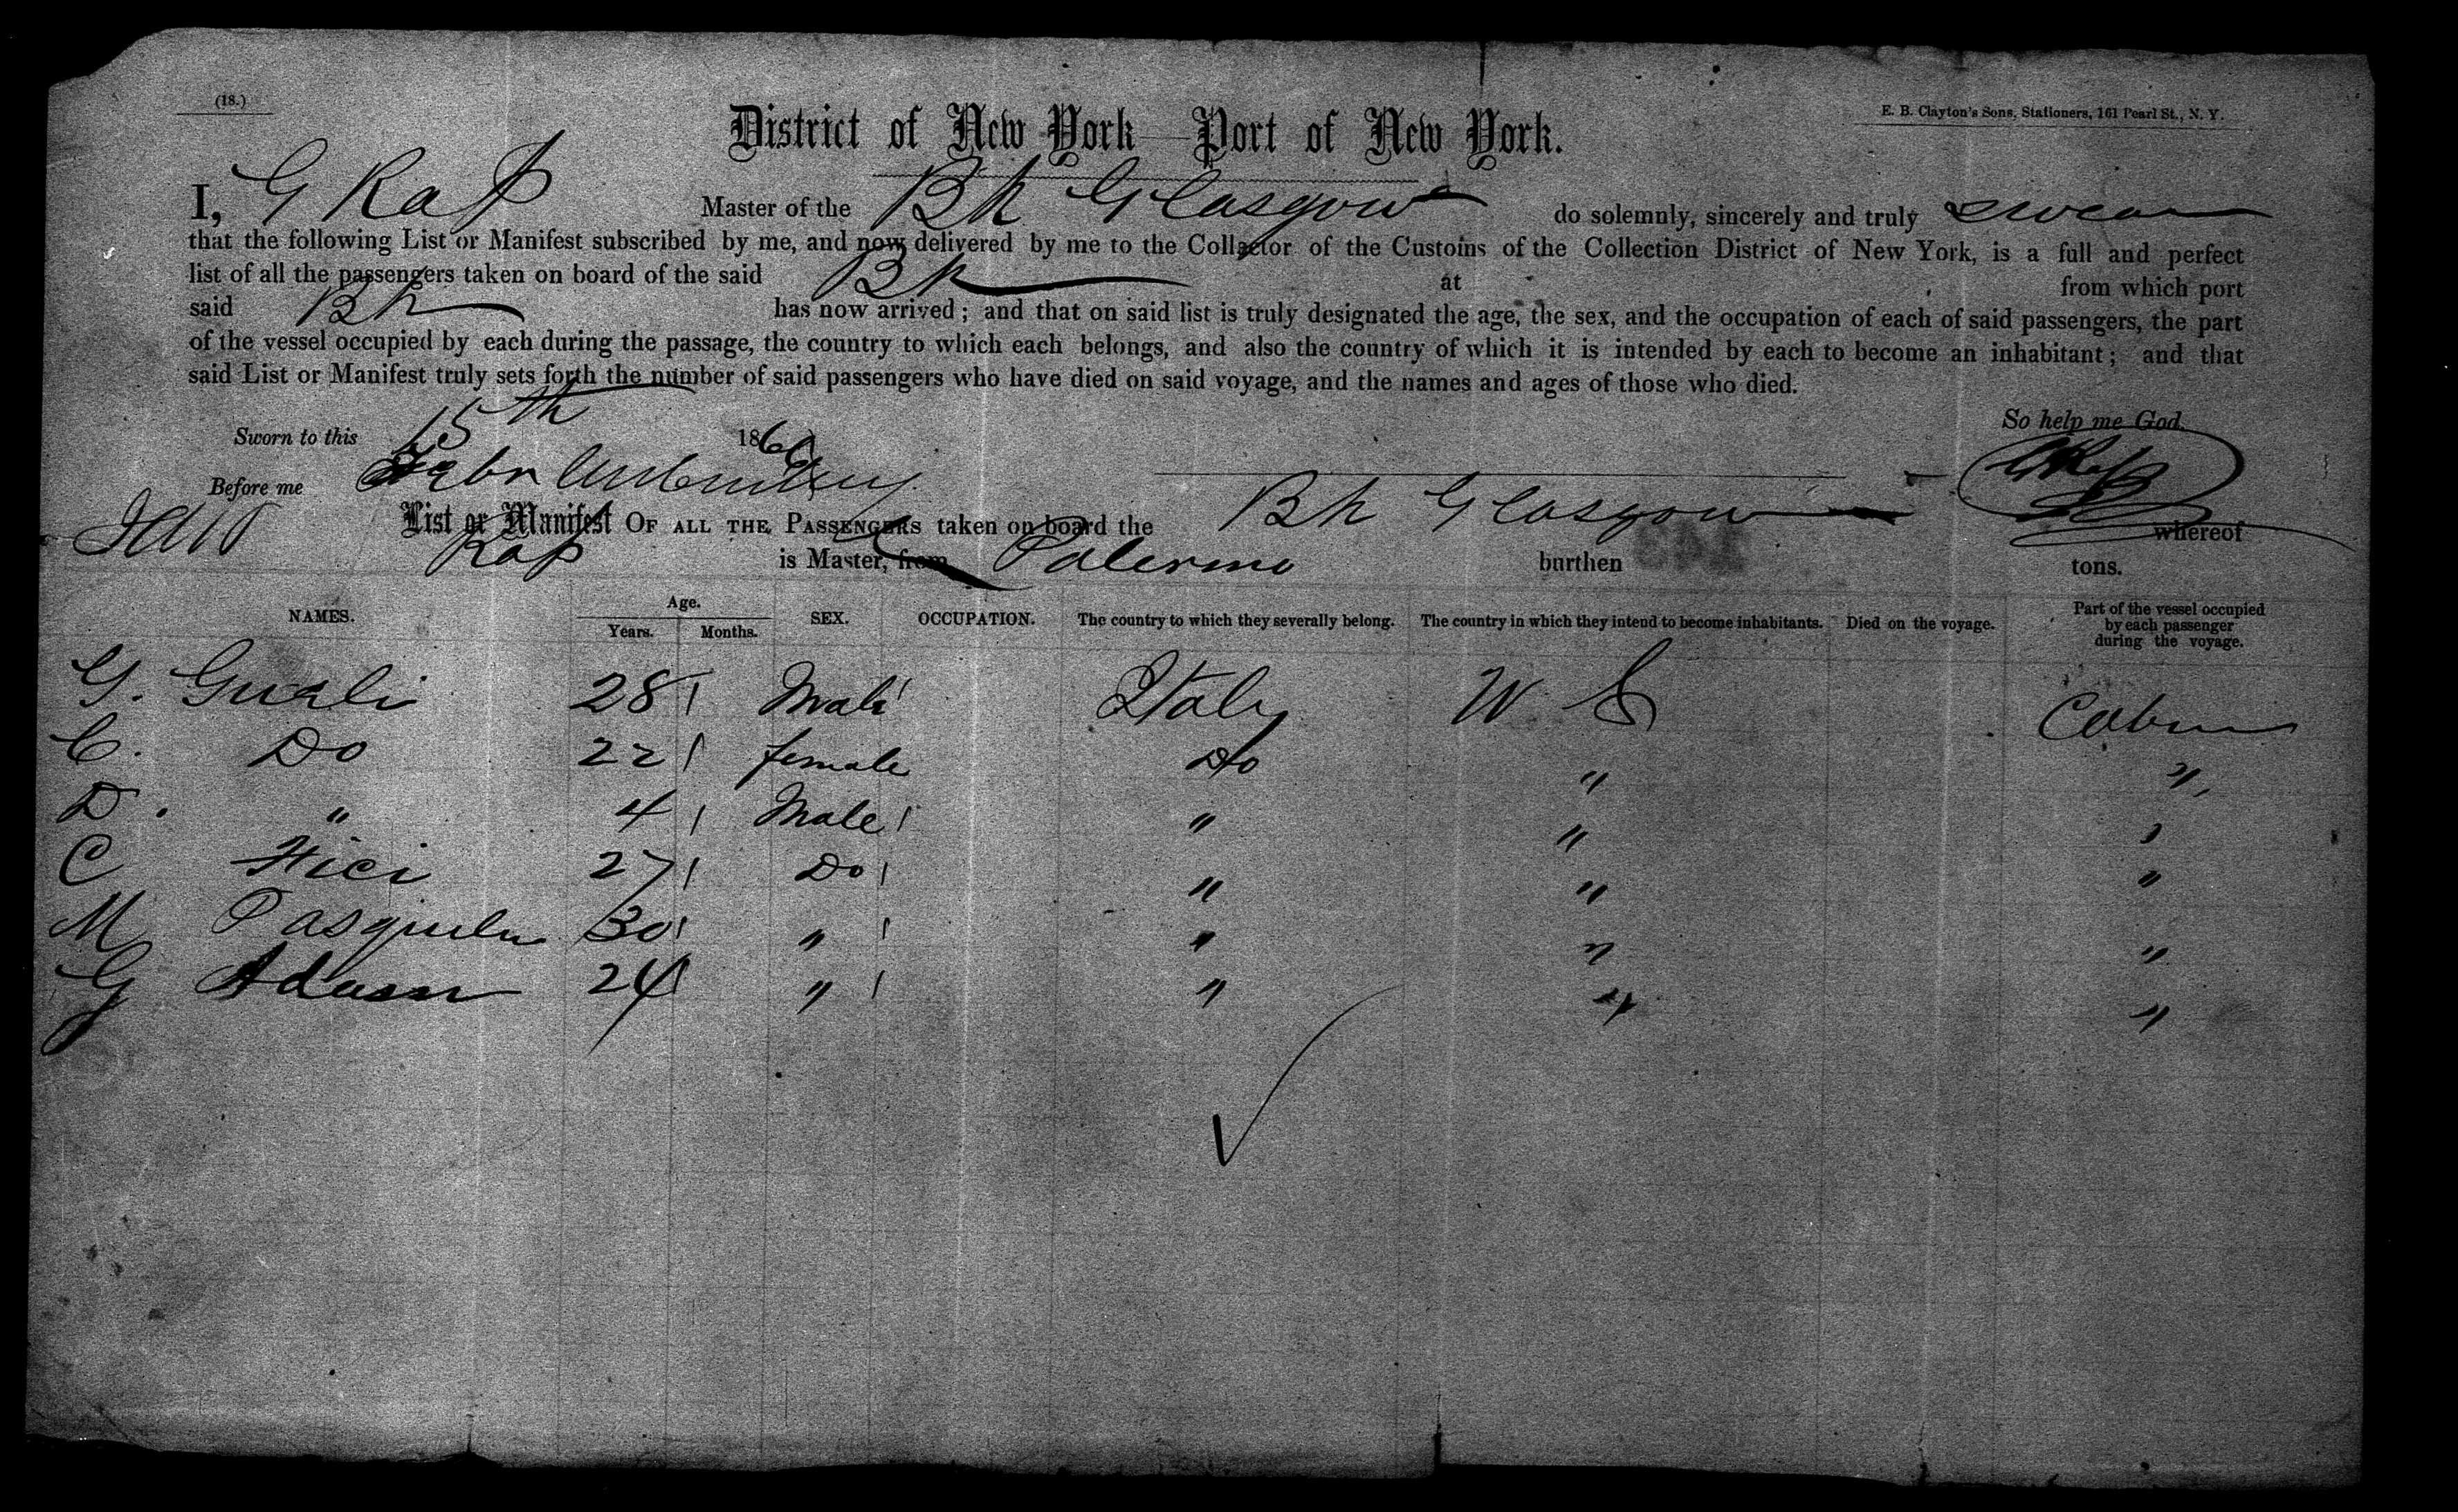 (18.)
E. B. Clayton's Sons, Stationers, 161 Pearl St., N. Y.
District of New York—Port of New York.
I, G Rap Master of the Bk Glasgow do solemnly, sincerely and truly swear
that the following List or Manifest subscribed by me, and now delivered by me to the Collector of the Customs of the Collection District of New York, is a full and perfect
list of all the passengers taken on board of the said Bk at from which port
said Bk has now arrived; and that on said list is truly designated the age, the sex, and the occupation of each of said passengers, the part
of the vessel occupied by each during the passage, the country to which each belongs, and also the country of which it is intended by each to become an inhabitant; and that
said List or Manifest truly sets forth the number of said passengers who have died on said voyage, and the names and ages of those who died.
So help me God.
Sworn to this 15th 186
Before me
List or Manifest OF ALL THE PASSENGERS taken on board the Bk Glasgow whereof
Rap is Master, from Palermo burthen 243 tons.
NAMES. Age. Years. Months. SEX. OCCUPATION. The country to which they severally belong. The country in which they intend to become inhabitants. Died on the voyage. Part of the vessel occupied by each passenger during the voyage.
G. 28 Male Italy U S Cabin
C. Do 22 female Do " "
D. " 4 Male " " "
C Fici 27 Do " " "
M 30 " " " "
G Adam 24 " " " "